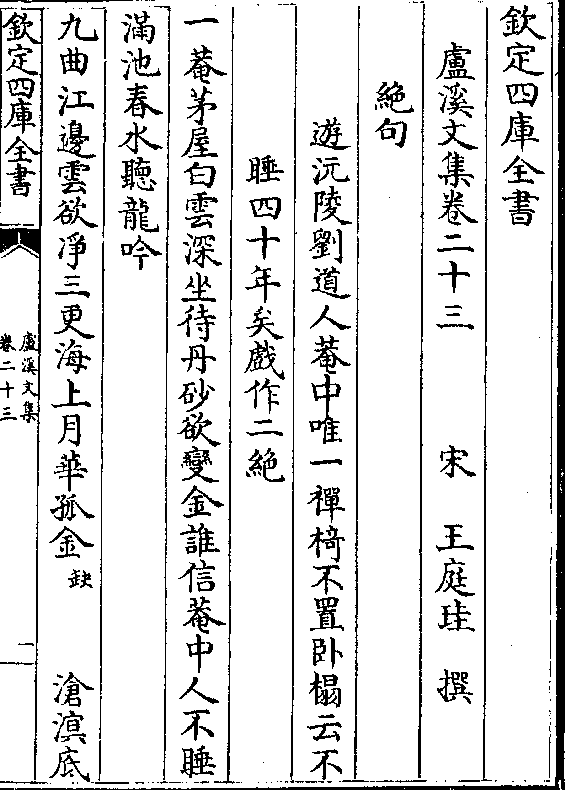 欽定四庫全書
盧溪文集卷二十三　宋　王庭珪　撰
絶句
遊沅陵劉道人菴中唯一禪椅不置卧榻云不
睡四十年矣戲作二絶
一菴茅屋白雲深坐待丹砂欲變金誰信菴中人不睡
滿池春水聽龍吟
九曲江邊雲欲凈三更海上月華孤金缺　滄溟底
欽定四庫全書
盧溪文集
卷二十三
一